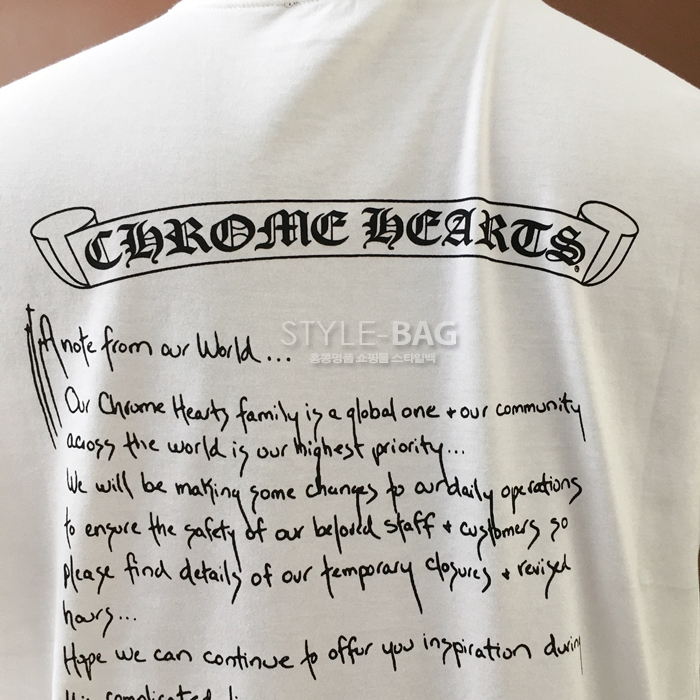 CHROME HEARTS®
STYLE-BAG
홍콩명품 쇼핑몰 스타일백
A note from our World...
Our Chrome Hearts family is a global one + our community
across the world is our highest priority...
We will be making some changes to our daily operations
to ensure the safety of our beloved staff + customers so
please find details of our temporary closures + revised
hours...
Hope we can continue to offer you inspiration during
this complicated